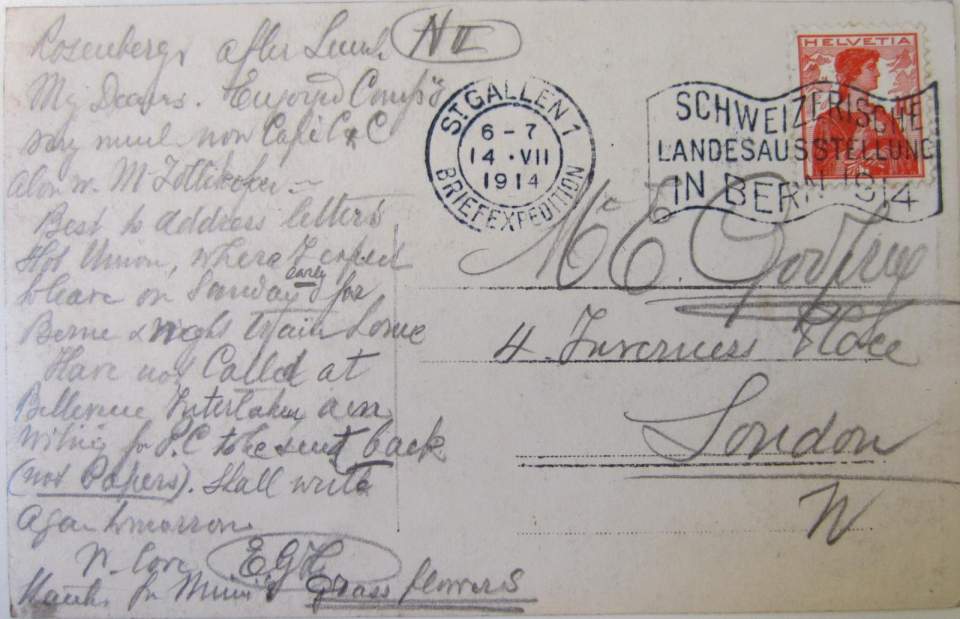 Rosenberg, after Lunch N II
My Dears. Enjoyed
very much now Café
Best to address letters
Hot Union, where I expect
to leave on Sunday early for
Berne & night train home
Have not Called at
Bellevue Interlaken am
writing for P.C to be sent back
(not Papers). Shall write
again tomorrow
W. love EGH
Thanks for Mimi's Grass flowers
HELVETIA
ST GALLEN 1
6-7
14.VII
1914
BRIEFEXPEDITION
SCHWEIZERISCHE
LANDESAUSSTELLUNG
IN BERN 1914
4. Inverness Place
London
W